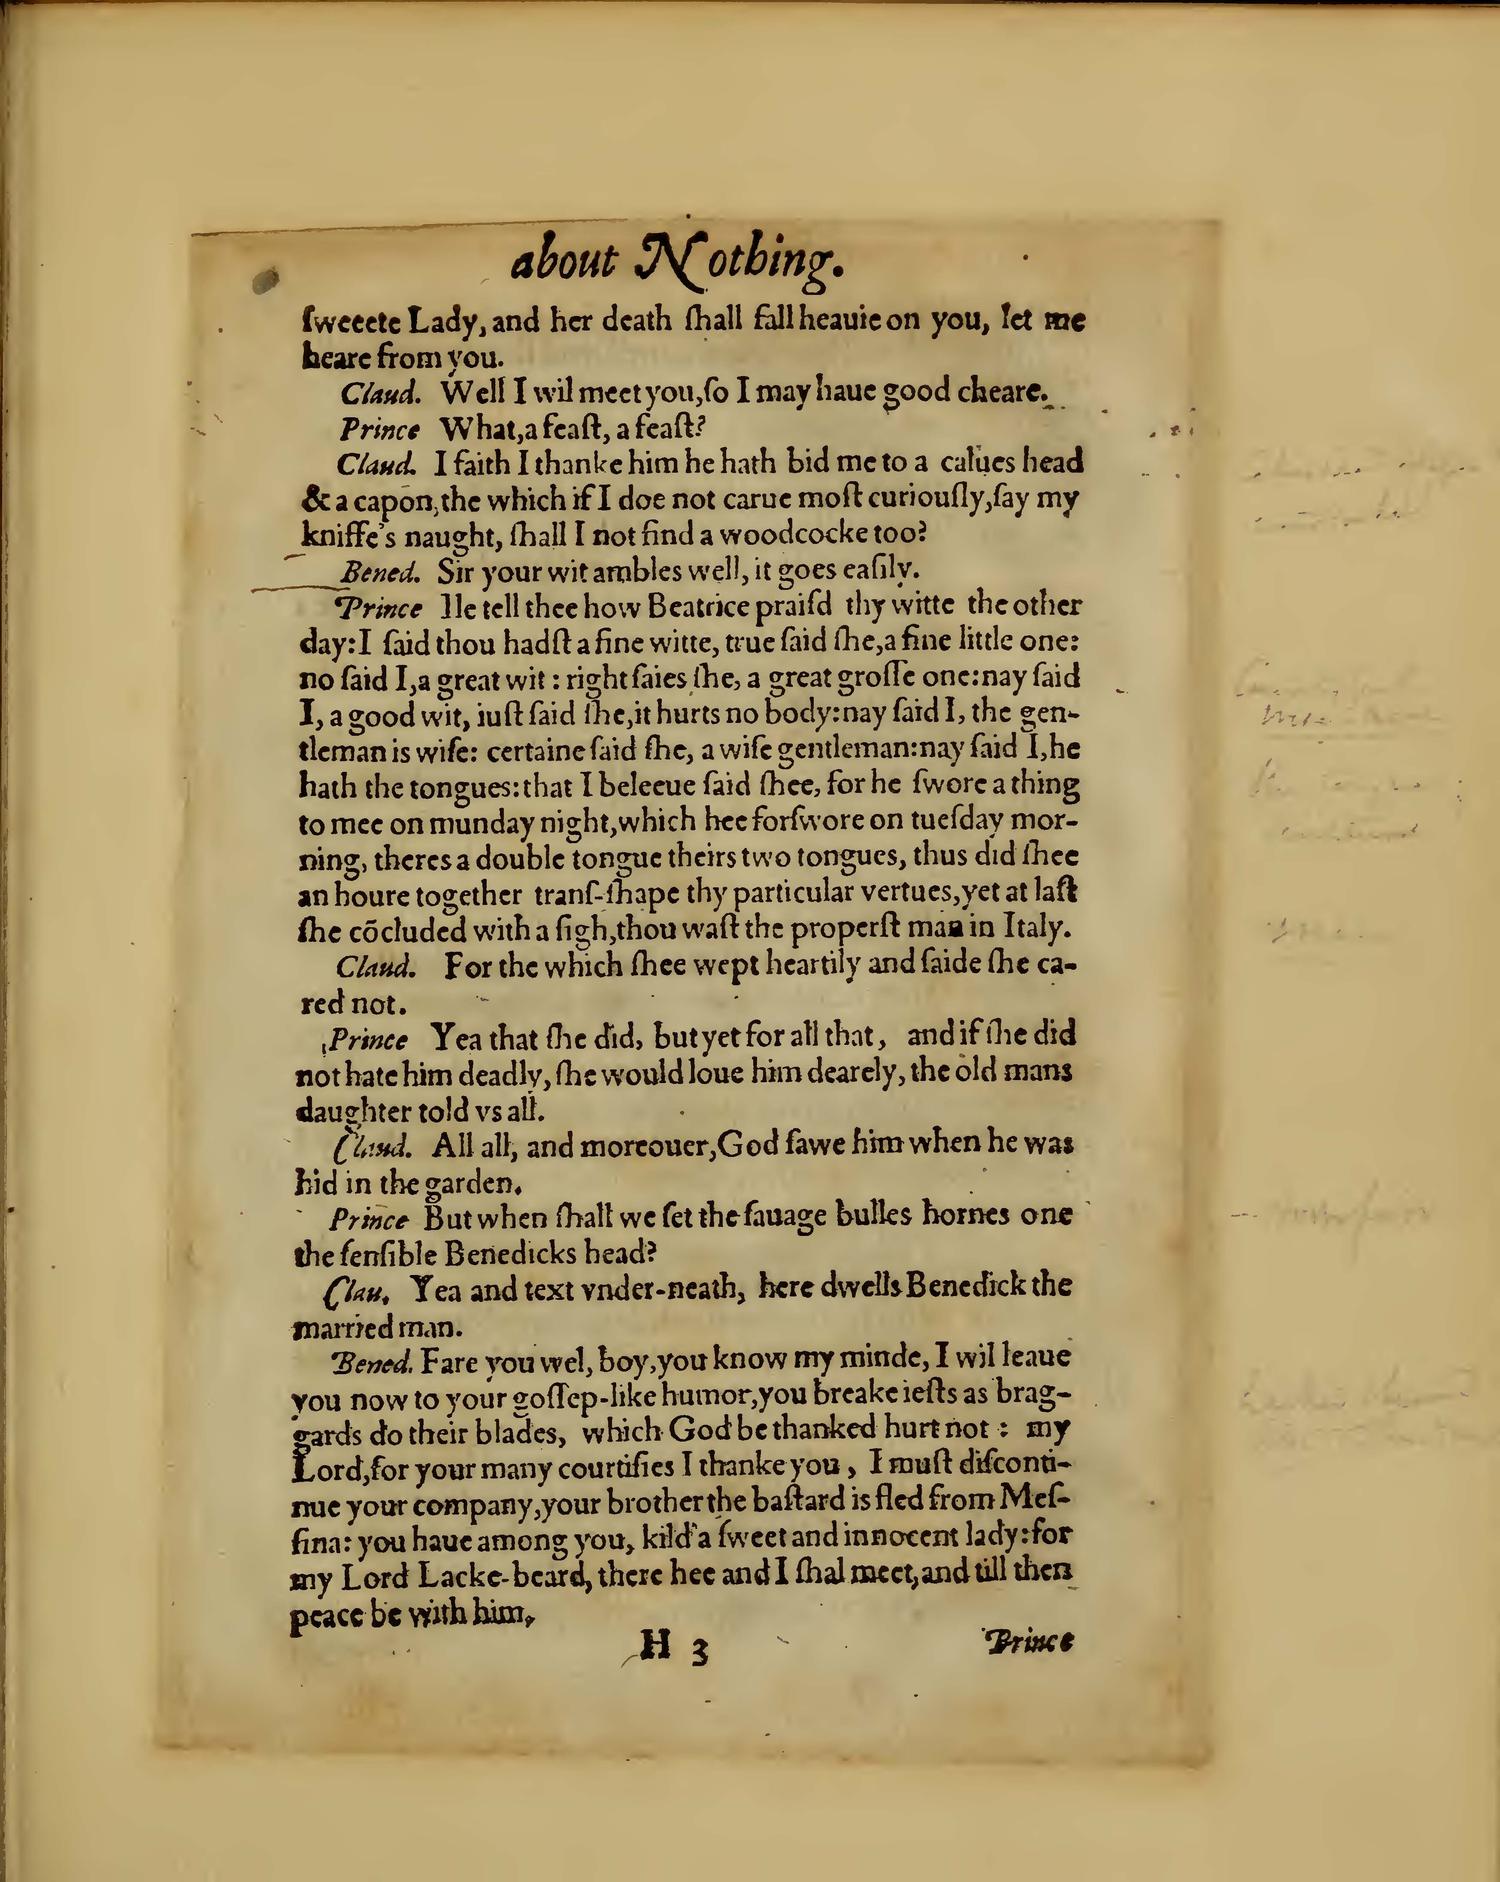 about Nothing.
ſweeete Lady, and her death ſhall fall heauie on you, let me
heare from you.
Claud. Well I wil meet you, ſo I may haue good cheare.
Prince What, a feaſt, a feaſt?
Claud. I faith I thanke him he hath bid me to a calues head
& a capon, the which if I doe not carue moſt curiouſly, ſay my
kniffe's naught, ſhall I not find a woodcocke too?
Bened. Sir your wit ambles well, it goes eaſily.
Prince Ile tell thee how Beatrice praiſd thy witte the other
day: I ſaid thou hadſt a fine witte, true ſaid ſhe, a fine little one:
no ſaid I, a great wit: right ſaies ſhe, a great groſſe one: nay ſaid
I, a good wit, iuſt ſaid ſhe, it hurts no body: nay ſaid I, the gen-
tleman is wiſe: certaine ſaid ſhe, a wiſe gentleman: nay ſaid I, he
hath the tongues: that I beleeue ſaid ſhee, for he ſwore a thing
to mee on munday night, which hee forſwore on tueſday mor-
ning, theres a double tongue theirs two tongues, thus did ſhee
an houre together tranſ-ſhape thy particular vertues, yet at laſt
ſhe cõcluded with a ſigh, thou waſt the properſt man in Italy.
Claud. For the which ſhee wept heartily and ſaide ſhe ca-
red not.
Prince Yea that ſhe did, but yet for all that, and if ſhe did
not hate him deadly, ſhe would loue him dearely, the old mans
daughter told vs all.
Claud. All all, and moreouer, God ſawe him when he was
hid in the garden.
Prince But when ſhall we ſet the ſauage bulles hornes one
the ſenſible Benedicks head?
Clau. Yea and text vnder-neath, here dwells Benedick the
married man.
Bened. Fare you wel, boy, you know my minde, I wil leaue
you now to your goſſep-like humor, you breake ieſts as brag-
gards do their blades, which God be thanked hurt not: my
Lord, for your many courtiſies I thanke you, I muſt diſconti-
nue your company, your brother the baſtard is fled from Meſ-
ſina: you haue among you, kild a ſweet and innocent lady: for
my Lord Lacke-beard, there hee and I ſhal meet, and till then
peace be with him.
H 3
Prince